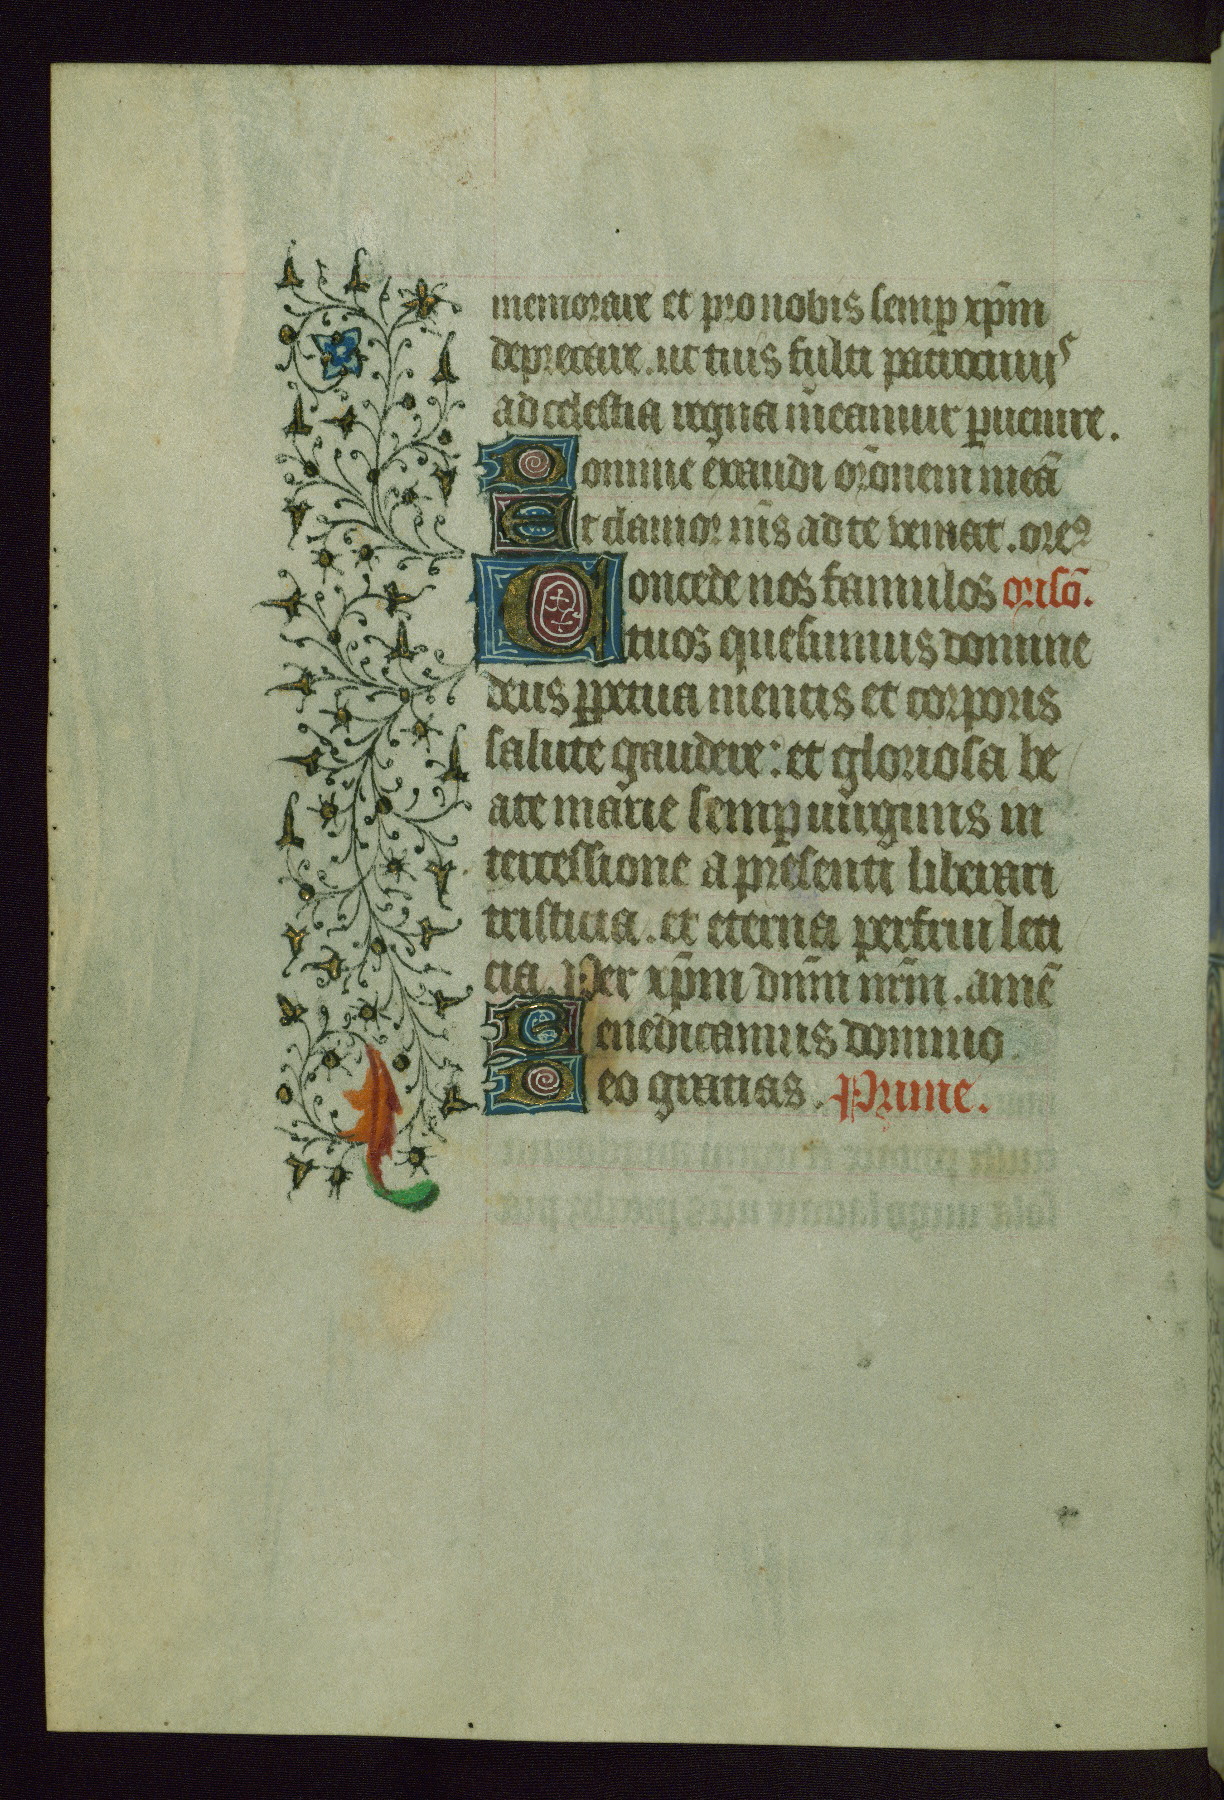 memorare et pro nobis semꝑ xp̄m
deprecare. ut tuis fulti patrociniis
ad celestia regna m̄eamur ꝑuenire.
Domine exaudi or̄onem meā
Et clamor m̄s ad te veniat. orem9
Concede nos famulos oriso̅.
tuos quesumus domine
deus ꝑpetua mentis et corporis
salute gaudere: et gloriosa be
ate marie semꝑ uirginis in
tercessione a presenti liberari
tristicia. et eterna perfrui leti
cia. Per xp̄m dn̄m nr̄m. amē
Benedicamus domino
Deo gratias. Prime.